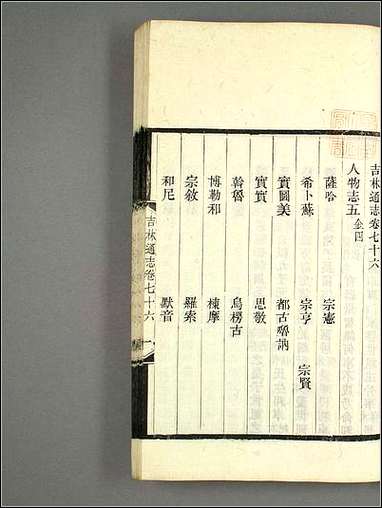 吉林通志卷七十六
人物志五 金四
薩哈 宗憲
希卜蘇 宗亨 宗賢
實圖美 都古嚕訥
實實 思敬
斡魯 烏楞古
博勒和 棟摩
宗敘 羅索
和尼 默音
吉林通志卷七十六 一